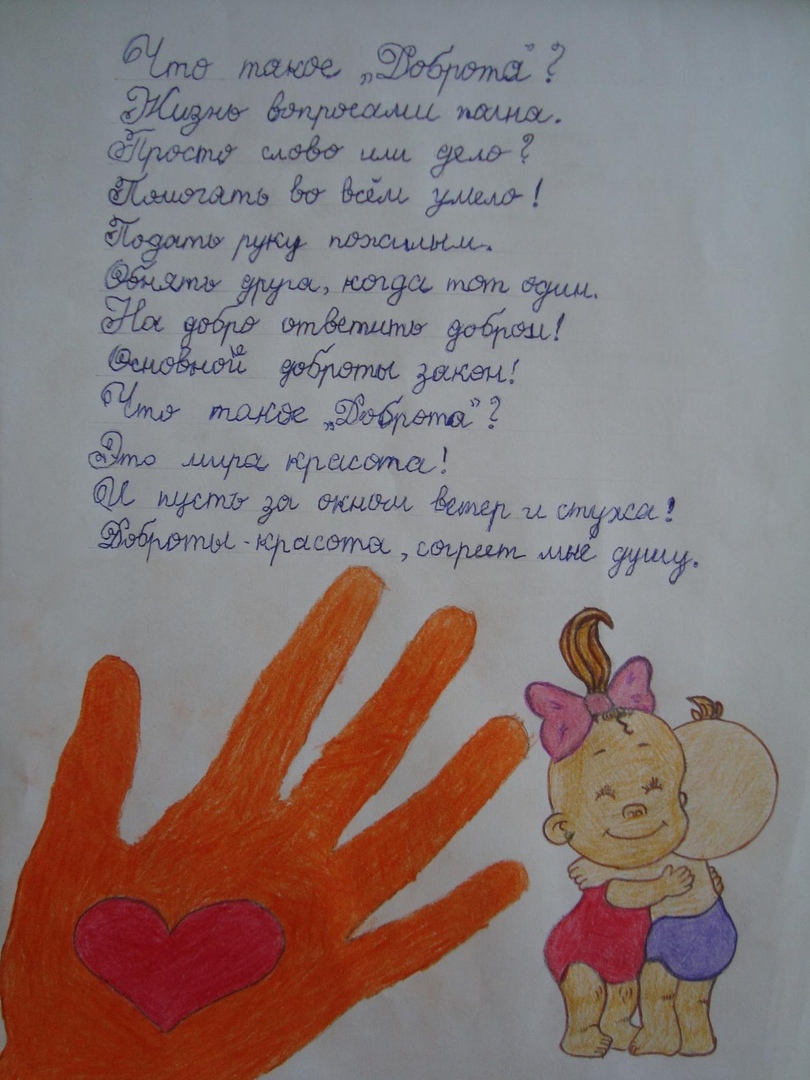 Что такое „Доброта"?
Жизнь вопросами полна.
Просто слово или дело?
Помогать во всём умело!
Подать руку пожилым.
Обнять друга, когда тот один.
На добро ответить добром!
Основной доброты закон!
Что такое „Доброта"?
Это мира красота!
И пусть за окном ветер и стужа!
Доброты - красота, согреет мне душу.